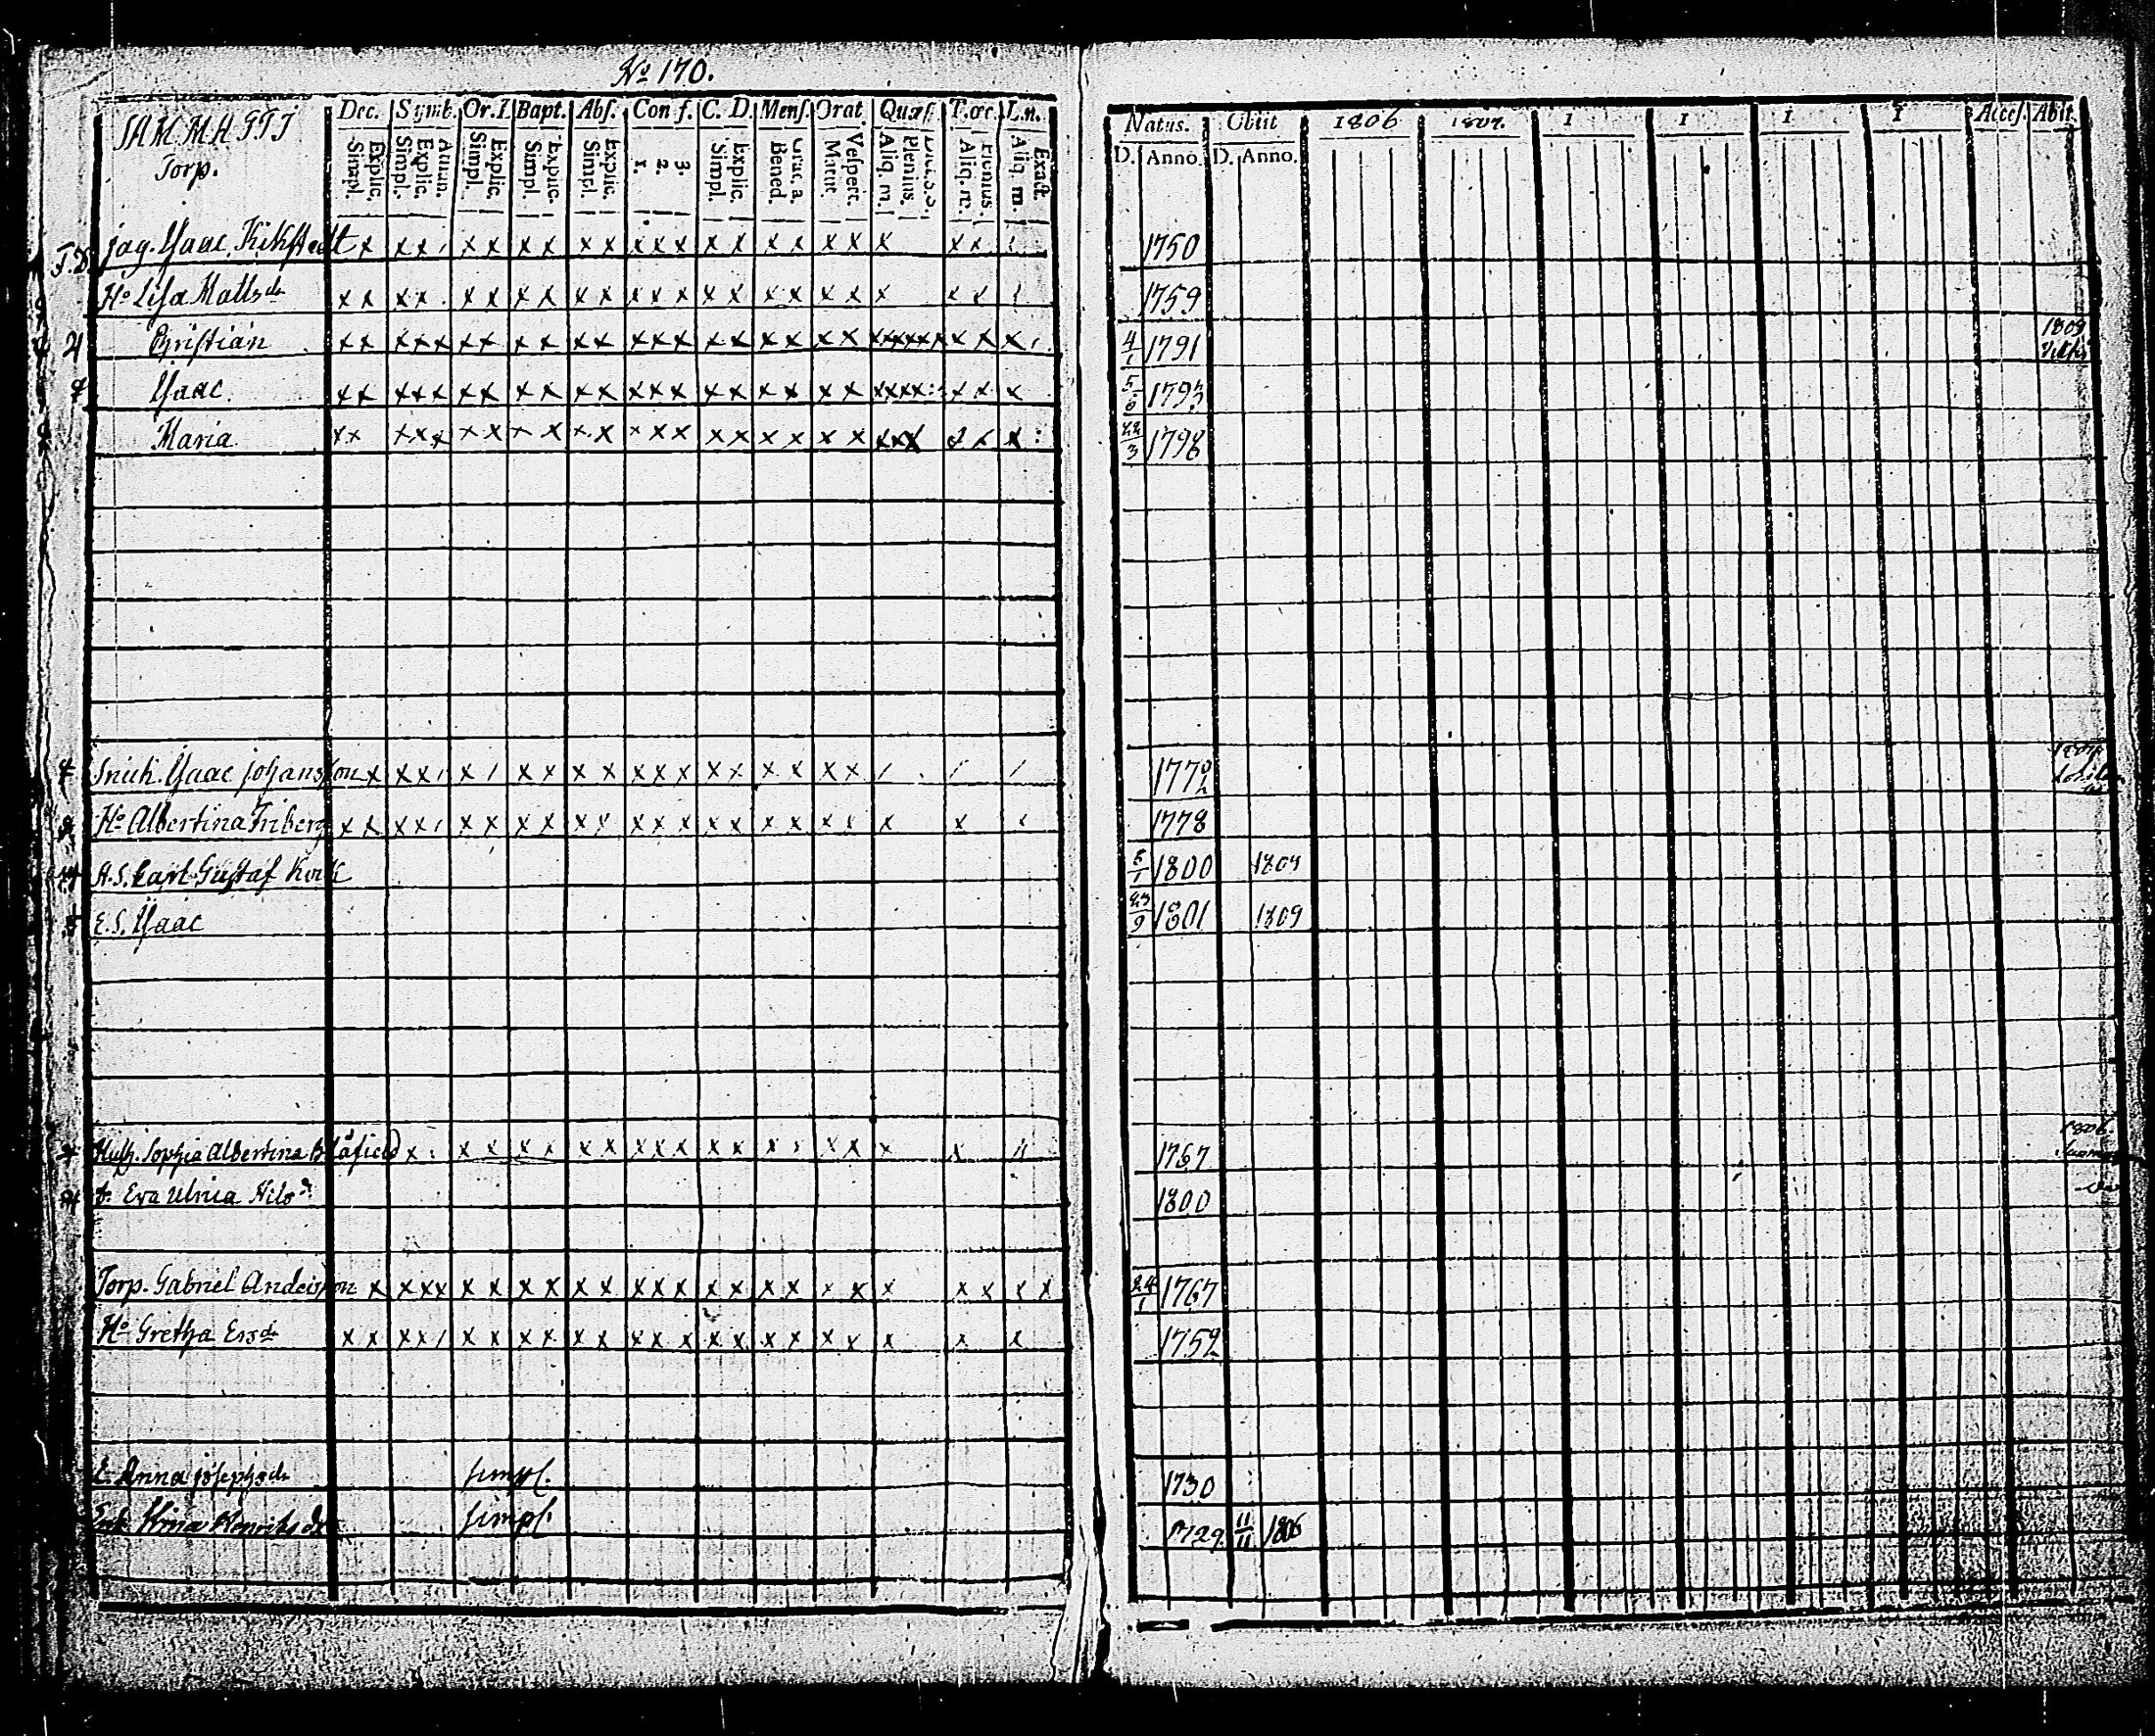 No 170.
Dec. Symb. Or. D. Bapt. Abs. Conf. C. D. Mens. Orat. Quæs. T. œc. L. n.
SAMMAGTI
Torp.
Explic. Simpl. Athan. Explic. Simpl. Explic. Simpl. Explic. Simpl. Explic. Simpl. 3. 2. 1. Explic. Simpl. Bened. Vespert. Matut. Plenius. Aliq. m. Plenius. Aliq. m. Exact. Aliq. m.
Natus. Obiit 1806 1807. 1 1 1 1 Acces. Abit.
D. Anno. D. Anno.
jag. Isaac Kihlstedt x x x x x x x x x x x x x x x x x x x x x 1750
Ho Lisa Matts dr x x x x x x x x x x x x x x x x x x x x x x 1759
Christian x x x x x x x x x x x x x x x x x x x x x x x x x x x x 4/1 1791 1809
Isaac x x x x x x x x x x x x x x x x x x x x x x x x x x x 1793
Maria x x x x x x x x x x x x x x x x x x x x x x x x x x 22/3 1798
Isaac Johansson x x x x x x x x x x x x x x x x x x 177
Ho Albertina Friberg x x x x x x x x x x x x x x x x x x x x x x 1778
Carl Gustaf 5/1 1800
E. S. Isaac 23/9 1801 1809
Sophia Albertina Blåfield x x x x x x x x x x x x x x x x x x x 1767 1806.
Eva Ulrica Nils d. 1800
Torp. Gabriel Andersson x x x x x x x x x x x x x x x x x x x x x x x x 24/1 1767
Ho Gretha Ers dr x x x x x x x x x x x x x x x x x x x x x x 1752
E. Anna Josephs dr simpl. 1730
Henriks dr simpl. 1729 11/11 1806